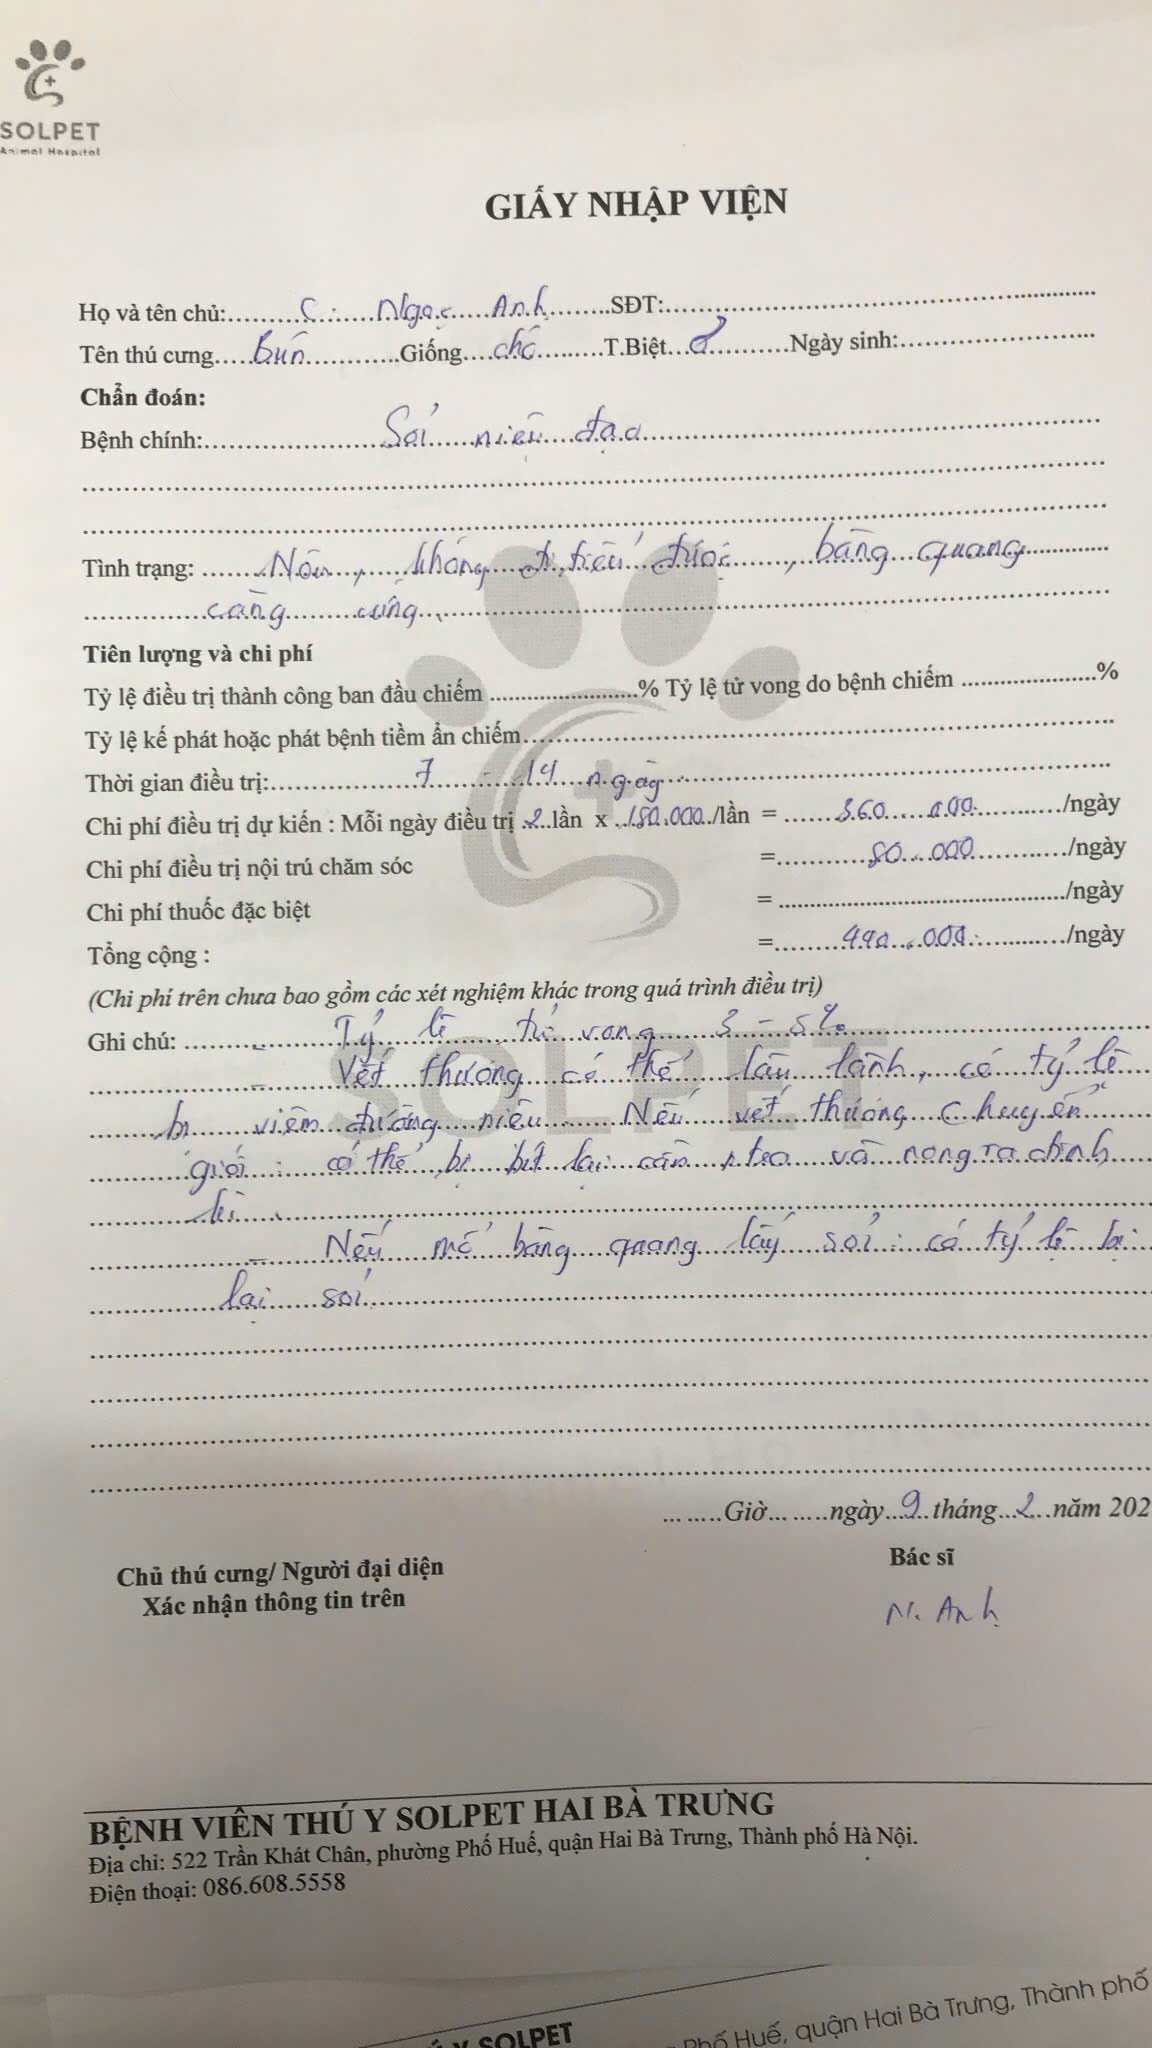 SOLPET
Animal Hospital
GIẤY NHẬP VIỆN
Họ và tên chủ:.........C:....Ngọc....Anh.........SĐT:............
Tên thú cưng.....Bún............Giống....chó.........T.Biệt...♂..........Ngày sinh:............
Chẩn đoán:
Bệnh chính:............Sỏi.....niệu....đạo............
Tình trạng: .......Nôn,....không....đi tiểu....được....,....bàng...quang............
............căng........cứng............
Tiên lượng và chi phí
Tỷ lệ điều trị thành công ban đầu chiếm ............% Tỷ lệ tử vong do bệnh chiếm ............%
Tỷ lệ kế phát hoặc phát bệnh tiềm ẩn chiếm............
Thời gian điều trị:............7....-....14....ngày............
Chi phí điều trị dự kiến : Mỗi ngày điều trị ..2..lần x .180.000./lần = .......360....000............/ngày
Chi phí điều trị nội trú chăm sóc =............80...000............/ngày
Chi phí thuốc đặc biệt = ............/ngày
Tổng cộng : =.........440....000............/ngày
(Chi phí trên chưa bao gồm các xét nghiệm khác trong quá trình điều trị)
Ghi chú: .........- Tỷ......lệ......tử vong......3 – 5%............
............-......Vết thương....có thể....lâu lành, có tỷ lệ
bị....viêm đường niệu. Nếu vết thương chuyển
giới : có thể bị bít lại cần và nong ra định
kì............
............-......Nếu....mổ bàng....quang lấy....sỏi : có tỷ lệ bị
lại....sỏi............
... .....Giờ... .....ngày...9..tháng...2...năm 202
Chủ thú cưng/ Người đại diện
Xác nhận thông tin trên
Bác sĩ
N. Anh
BỆNH VIỆN THÚ Y SOLPET HAI BÀ TRƯNG
Địa chỉ: 522 Trần Khát Chân, phường Phố Huế, quận Hai Bà Trưng, Thành phố Hà Nội.
Điện thoại: 086.608.5558
Y SOLPET
Phố Huế, quận Hai Bà Trưng, Thành phố